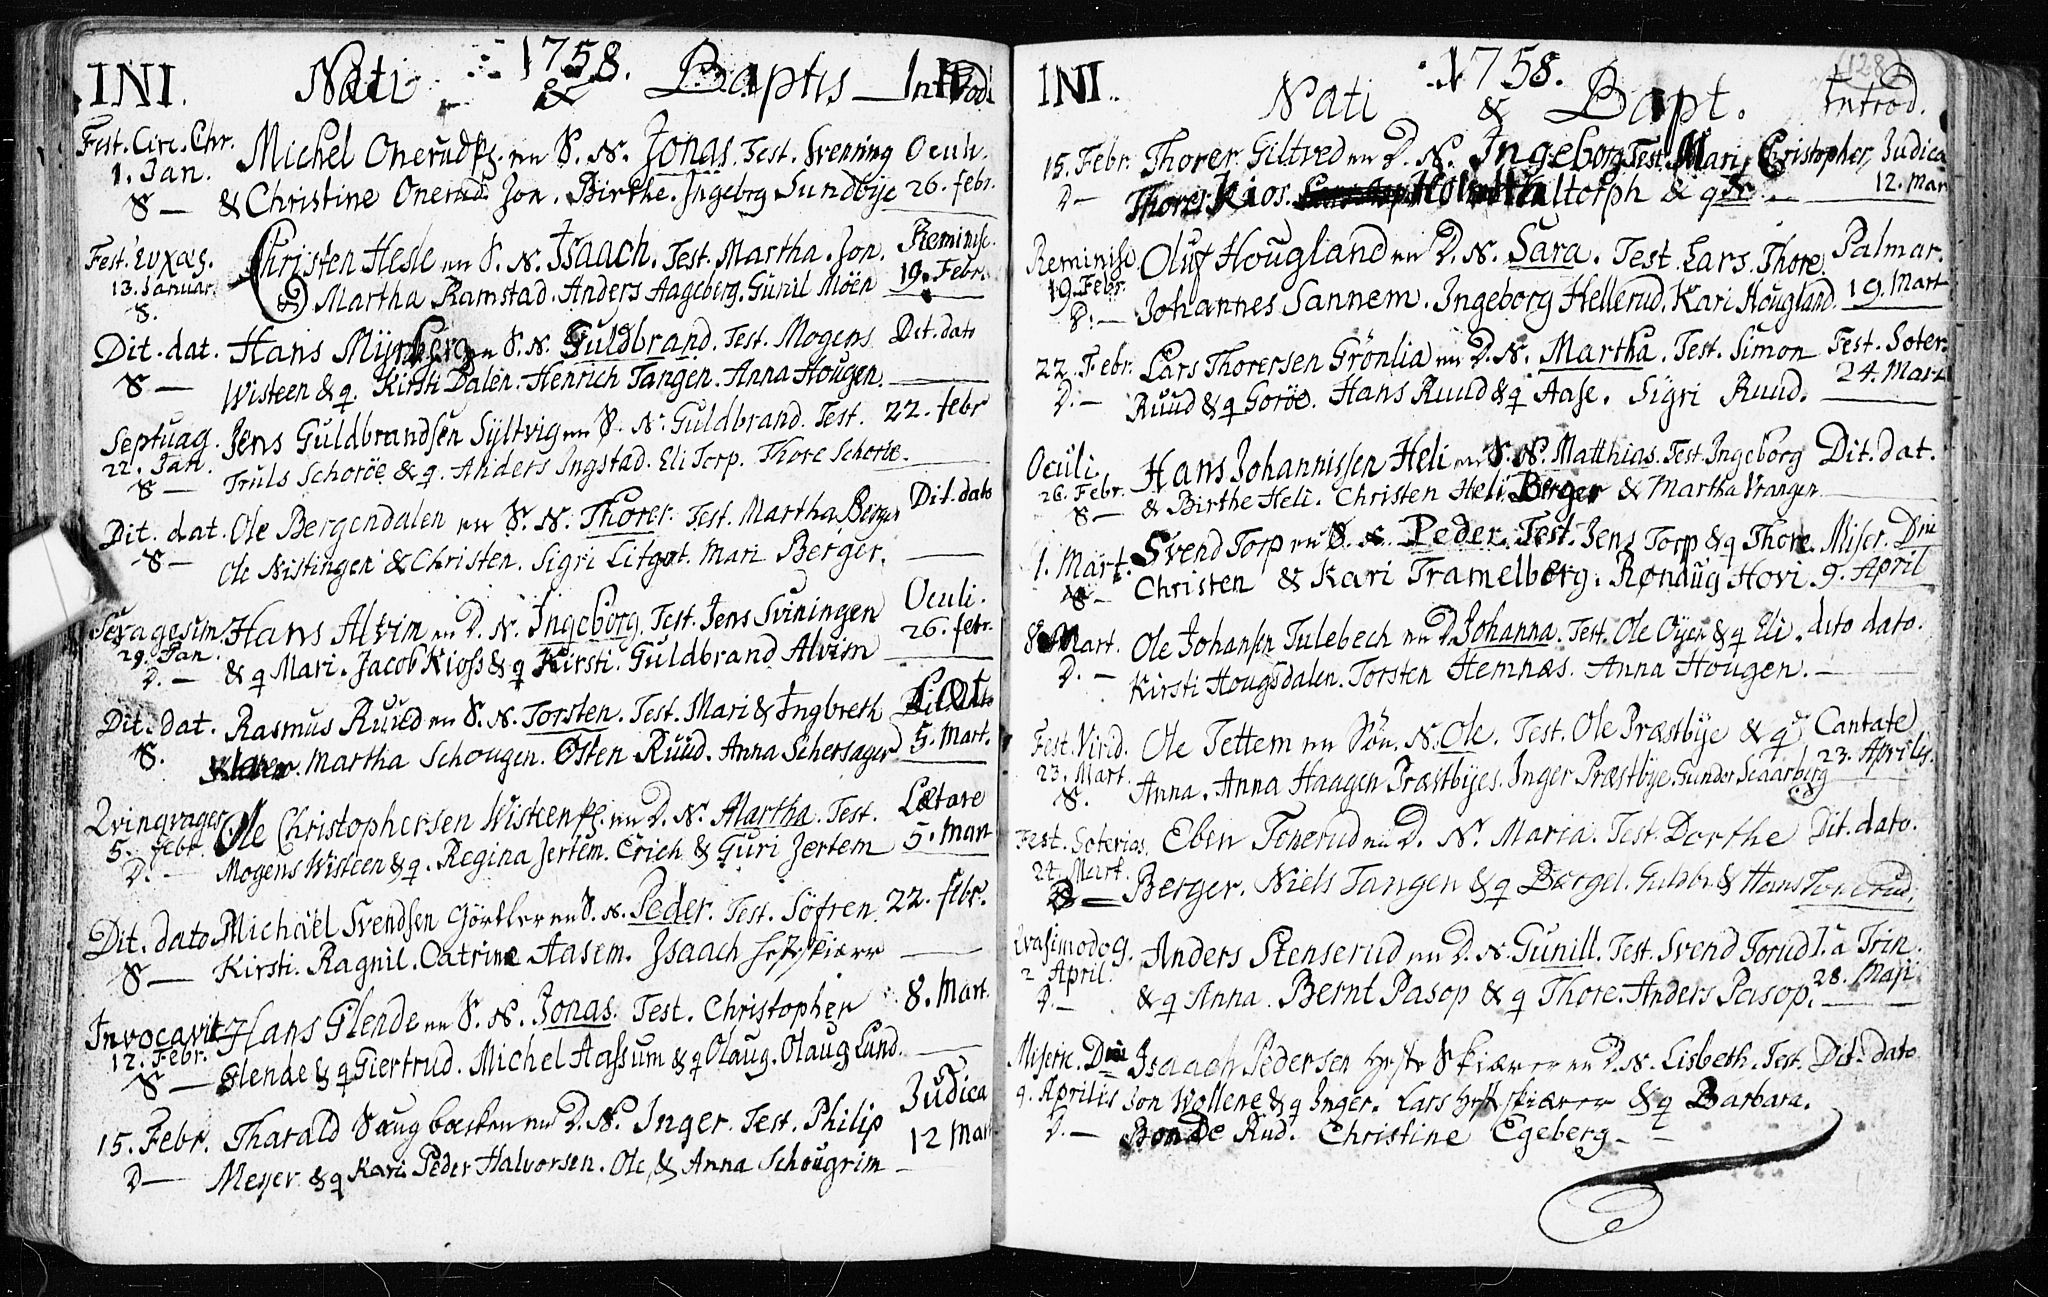 1758.
INI. Nati & Baptis Introd.
Fest. Circ. Chr. Michel Onerud en S. N. Jonas. Test. Svenning Oculi.
1. Jan. S — & Christine Onerud. Jon. Birthe. Ingeborg Sundbye 26. febr.
Fest. Christen Hesle en S. N. Isaach. Test. Martha. Jon. Reminisc.
13. Januar. S. Martha Ramstad. Anders Aageberg. Gunil Möen 19. Febr.
Dit. dat. Hans Mijrberg en S. N. Guldbrand. Test. Mogens Dit. dato
S — Wisteen & q. Kirsti Dalen. Henrich Tangen. Anna Hougen.
Septuag. Jens Guldbrandsen Syltvig en S. N. Guldbrand. Test. 22. febr
22. Jan. S — Truls Schoröe & q. Anders Ingstad. Eli Torp. Thore Schoröe.
Dit. dat. Ole Bergendalen en S. N. Thorer. Test. Martha Berger Dit. dato
S — Ole Nistingen & Christen. Sigri Mari Berger.
Sexagesim. Hans Alvim en D. N. Ingeborg. Test. Jens Sviningen Oculi.
29. Jan. D. — & q Mari. Jacob Kioss & q Kirsti. Guldbrand Alvim 26. febr.
Dit. dat. Rasmus Ruud en S. N. Torsten. Test. Mari & Ingbreth Læt
S. Martha Schougen. Osten Ruud. Anna Schersager 5. Mart.
Qvinqvages Ole Christophersen Wisteen en D. N. Martha. Test. Lætare
5. febr. D. — Mogens Wisteen & q. Regina Jertem. Erich & Guri Jertem 5. Mart
Dit. dato Michaël Svendsen Görtler en S. N. Peder. Test. Söfren 22. febr.
S — Kirsti. Ragnil. Catrine Aasem. Isaach
Invocavit Hans Glende en S. N. Jonas. Test. Christopher 8. Mart.
12. Febr. S — Glende & q Giertrud. Michel Aassum & q Olaug. Olaug Lund.
15. Febr. Tharald Saugbæken en D. N. Inger. Test. Philip Judica
D — Meyer & q Kari. Peder Halvorsen. Ole & Anna Schougrim 12 Mart
128
1758.
INI. Nati & Bapt. Introd.
15. Febr. Thorer Giltved en D. N. Ingeborg Test. Mari, Christopher, Judica
D — Thorer Kios. & q 12. Mar
Reminisc Oluf Hougland en D. N. Sara. Test. Lars. Thore Palmar.
19. Febr. S. — Johannes Sannem. Ingeborg Hellerud. Kari Hougland. 19. Mart
22. Febr. Lars Thorersen Grönlia en D. N. Martha. Test. Simon Fest. Soter.
D. — Ruud & q Goröe. Hans Ruud & q Aase. Sigri Ruud. 24. Mart
Oculi Hans Johannissen Heli en S. N. Matthias. Test. Ingeborg Dit. dat.
26. Febr. S — & Birthe Heli. Christen Heli Berger & Martha Vrangen
1. Mart. Svend Torp en S. N. Peder. Test. Jens Torp & q Thore. Miser. Dni
S — Christen & Kari Tramelborg. Rønaug Hovi 9. April
8. Mart. Ole Johansen Tulebech en D. Johanna. Test. Ole Oyen & q Eli. dito dato.
D. — Kirsti Hougsdalen. Torsten Hemnæs. Anna Hougen.
Fest. Virid. Ole Tettem en Sön. N. Ole. Test. Ole Præstbye & q Cantate
23. Mart. S. Anna. Anna Haagen Præstbyes. Inger Præstbye. Gunder Scaarberg 23. Aprilis.
Fest. Soterias. Eben Tonerud en D. N. Maria. Test. Dorthe Dit. dato.
24. Mart. D — Berger. Niels Tangen & q Børgel. Guldbr. & Hans Tonerud.
Qvasimodog. Anders Stenserud en D. N. Gunill. Test. Svend Torud I. a Trin.
2 April. D. — & q Anna. Bernt Pasop & q Thore. Anders Pasop. 28. Maji
Miseric. Dni Isaach Pedersen en D. N. Lisbeth. Test. Dit. dato
9. Aprilis D. — Jon Wollene & q Inger. Lars & q Barbara.
Bonde Rud. Christine Egeberg —